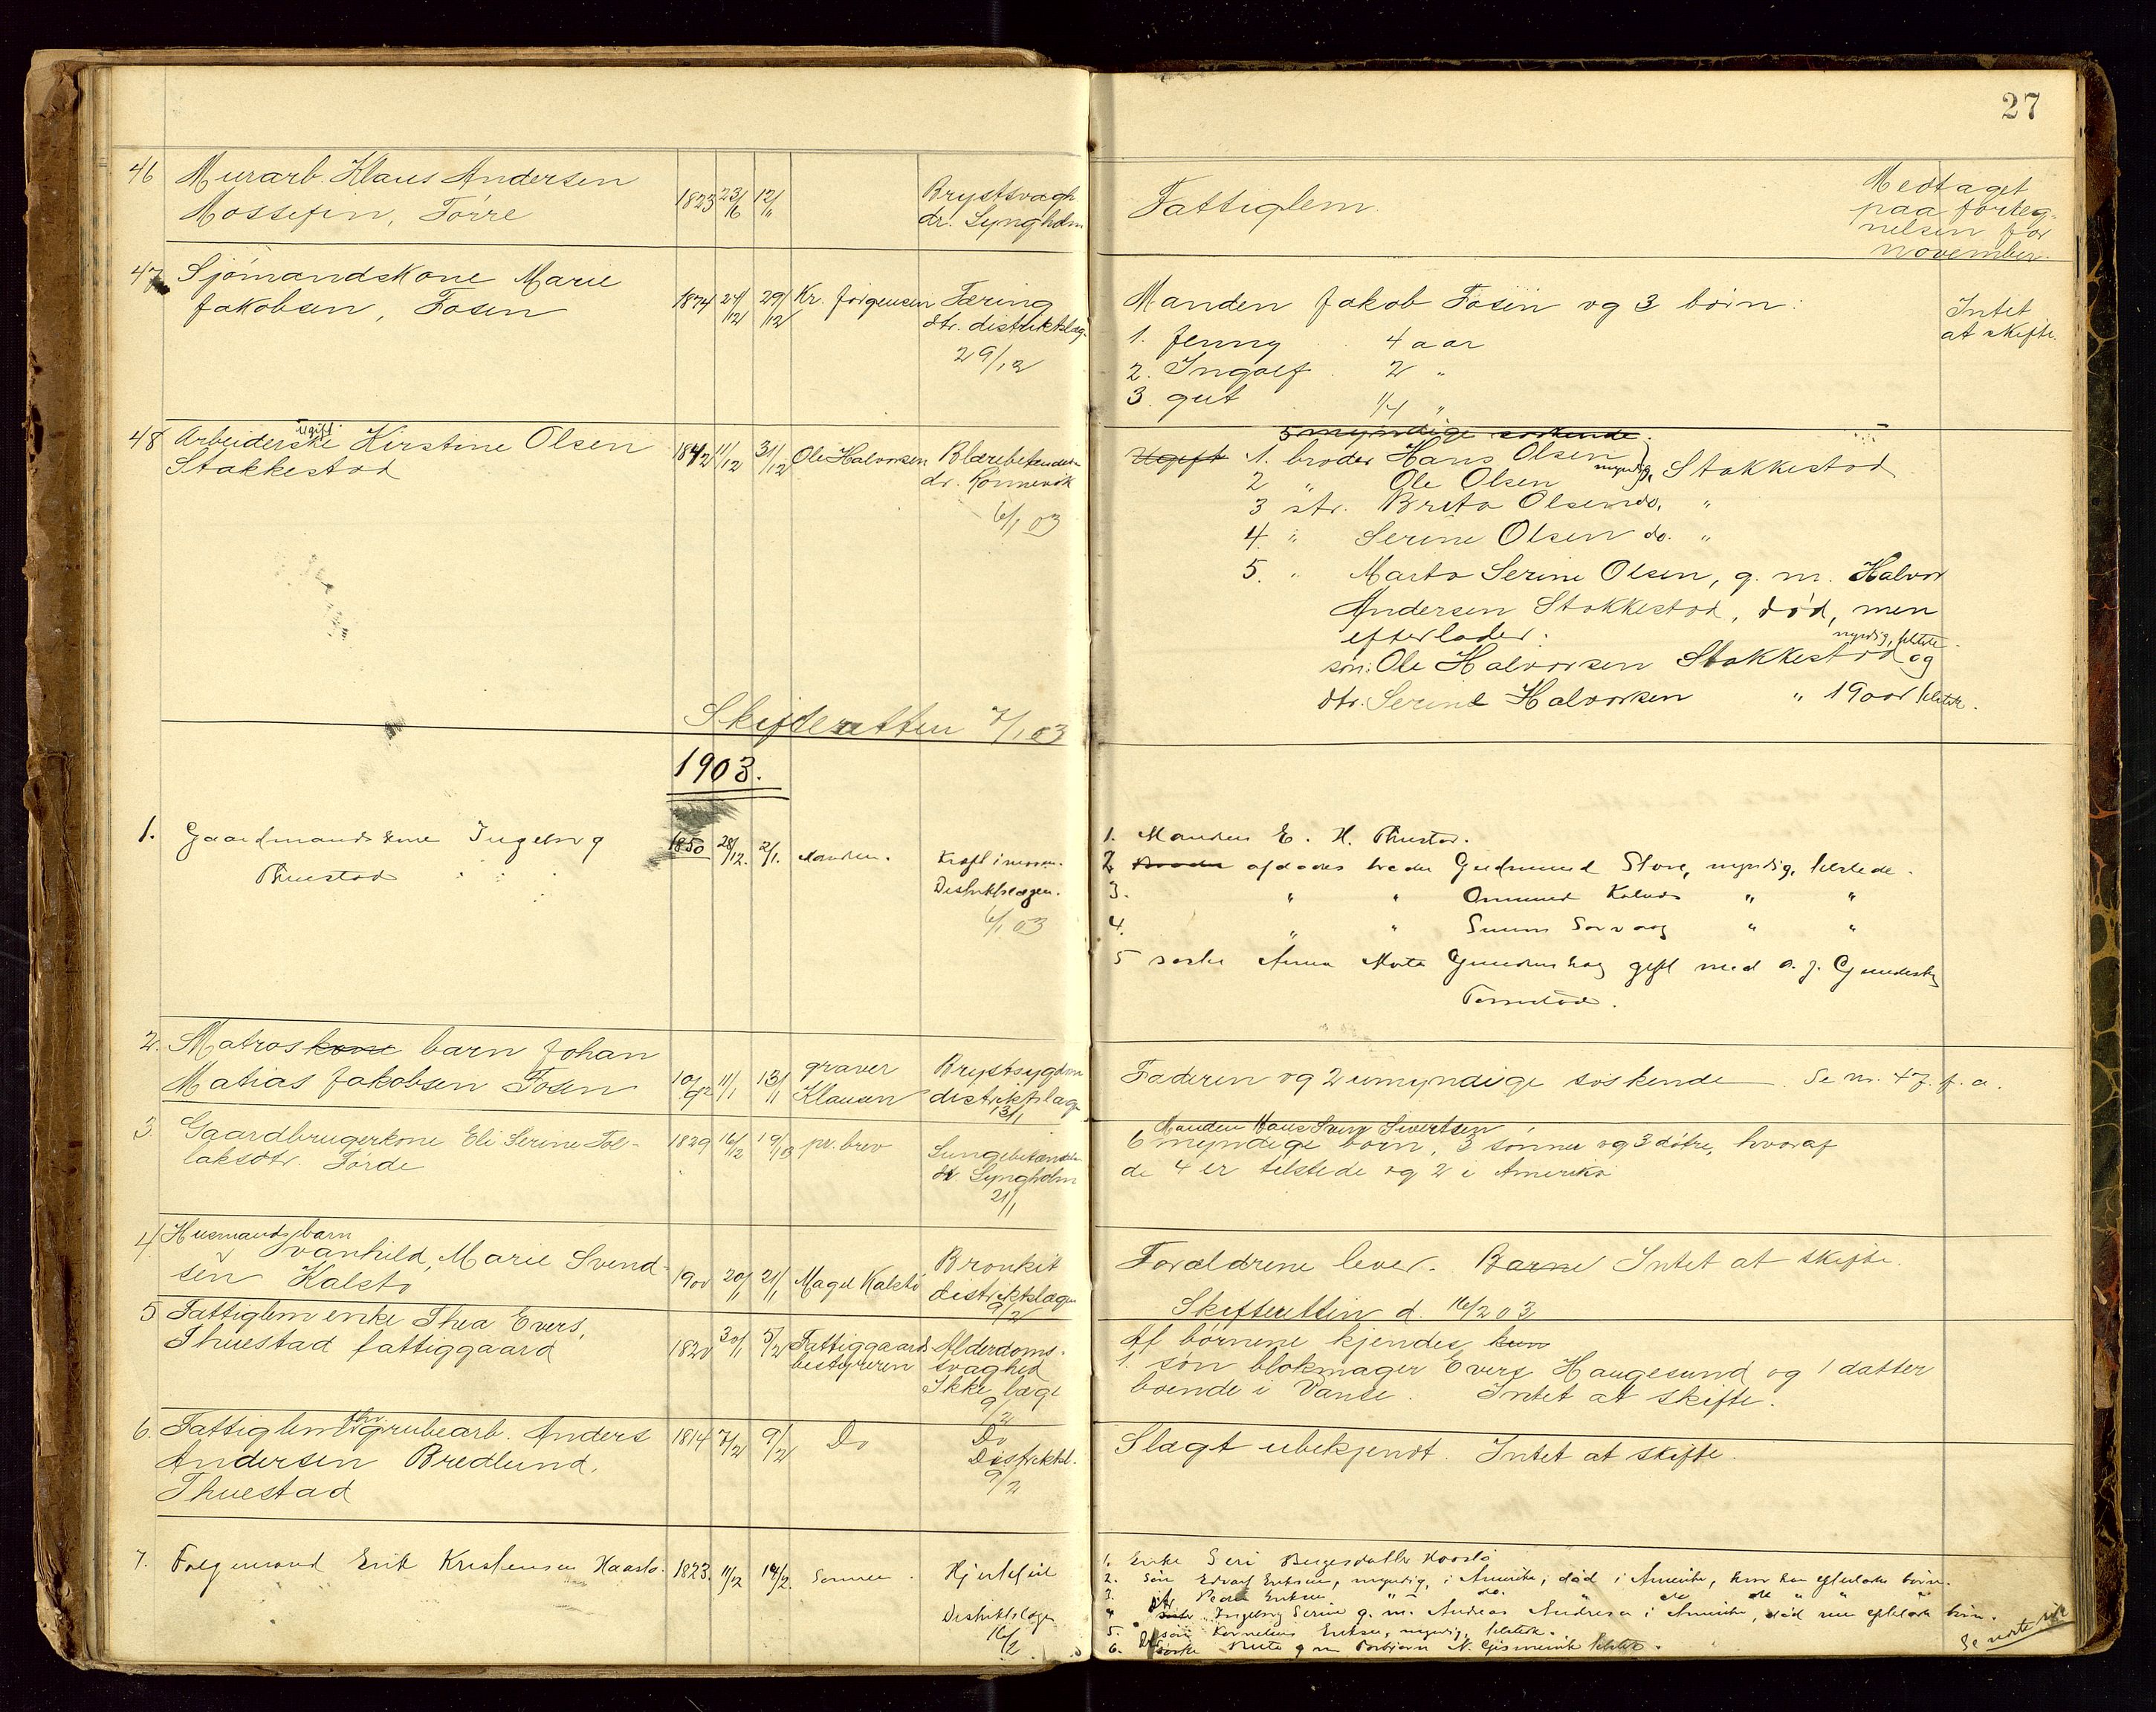 27
46 Murarb. Klaus Andersen 1823 23/6 12/11 Brystsvagh
Mossefin, Førre dr. Lyngholm
Fattiglem. Medtaget
paa forteg-
nelsen for
november.
47 Sjømandskone Marie 1874 27/12 29/12 Kr. Jørgensen Tæring
Jakobsen, Fosen dtr. distriktslæg.
29/12
Manden Jakob Fosen og 3 børn: Intet
at skifte.
1. Jenny 4 aar
2. Ingolf 2 "
3. gut 1/4 "
48 Arbeiderske ugift Kirstine Olsen 1842 11/12 31/12 Ole Halvorsen Blærebetændelse
Stakkestad dr. Konnevik
6/1 03
5 myndige søskende.
Ugift 1. broder Hans Olsen myndig, Stakkestad
2 " Ole Olsen
3 str. Brita Olsen do. "
4. " Serine Olsen do. "
5. " Marta Serine Olsen, g. m. Halvor
Andersen Stakkestad, død, men
efterlader:
søn: Ole Halvorsen Stakkestad myndig, tilstede. og
dtr. Serine Halvorsen " 19 aar tilstede.
Skifteretten 7/1 03
1903.
1. Gaardmandskone Ingeborg 1850 28/12. 2/1. Manden. Kræft i
Thuestad Distriktslægen.
6/1 03
1. Manden E. H. Thuestad.
2 afdødes broder Gudmund Store, myndig, tilstede.
3. " " Ommund " "
4. " " " "
5 søster Anna Marta gift med
2. Matroskone barn Johan 10/9 92 11/1 13/1 graver Brystsygdom
Matias Jakobsen Fosen Klausen distriktslæge
13/1
Faderen og 2 umyndige søskende. Se nr. 47 f. a.
3 Gaardbrugerkone Eli Serine Tol- 1829 16/12 19/1 03 pr. brev Lungebetændelse
laksdtr. Førde dr. Lyngholm
21/1
Manden Hans Svein Sivertsen
6 myndige børn, 3 sønner og 3 døtre, hvoraf
de 4 er tilstede og 2 i Amerika
4. Husmandsbarn
Svanhild, Marie Svend- 1900 20/1 21/1 Magel Kalstø Bronkit
sen Kalstø distriktslægen
9/2
Forældrene lever. Barne Intet at skifte.
Skifteretten d. 16/2 03
5 Fattiglem enke Thea Evers, 1820 30/1 5/2 Fattiggaards Alderdoms-
Thuestad fattiggaard bestyreren svaghed
Ikke læge
9/2
Af børnene kjendes kun
1. søn blokmager Evers Haugesund og 1 datter
boende i Vanse. Intet at skifte.
6. Fattiglem fhv. grubearb. Anders 1814 7/2 9/2 Do Do
Andersen Bredlund, Distriktsl.
Thuestad 9/2
Slægt ubekjendt. Intet at skifte.
7. Føigemand Erik Kristensen Haasto. 1823. 11/2 14/2. Sønnen. Hjertefeil
Distriktslægen
16/2
1. Enke Seri Bergesdatter Haasto
2. Søn Edvart Eriksen, myndig, i Amerika, død i Amerika, hvor han efterlader børn.
3. Peder Eriksen " " do. do do " "
4. dtr. Ingeborg Serine g. m. Andreas Andresen i Amerika, død men efterladt børn.
5. søn Kornelius Eriksen, myndig, tilstede.
6. Dtr. Marta g m Torbjørn N. tilstede.
Se næste side